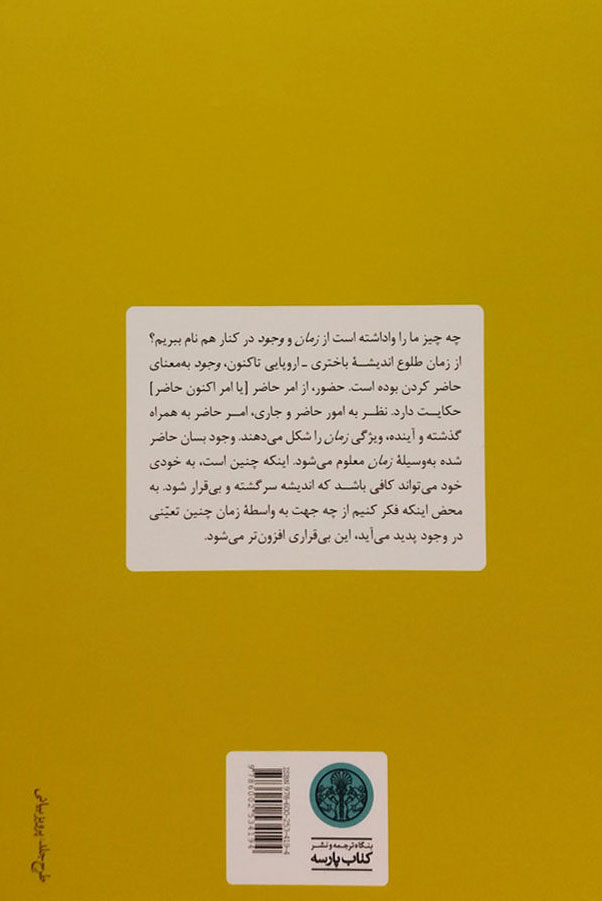 چه چیز ما را واداشته است از زمان و وجود در کنار هم نام ببریم؟
از زمان طلوع اندیشهٔ باختری ـ اروپایی تاکنون، وجود به‌معنای
حاضر کردن بوده است. حضور، از امر حاضر [یا امر اکنون حاضر]
حکایت دارد. نظر به امور حاضر و جاری، امر حاضر به همراه
گذشته و آینده، ویژگی زمان را شکل می‌دهند. وجود بسان حاضر
شده به‌وسیلهٔ زمان معلوم می‌شود. اینکه چنین است، به خودی
خود می‌تواند کافی باشد که اندیشه سرگشته و بی‌قرار شود. به
محض اینکه فکر کنیم از چه جهت به واسطهٔ زمان چنین تعیّنی
در وجود پدید می‌آید، این بی‌قراری افزون‌تر می‌شود.
ISBN 978-600-253-419-4
9786002534194
بنگاه ترجمه و نشر
کتاب پارسه
طرح جلد: پرویز بیانی